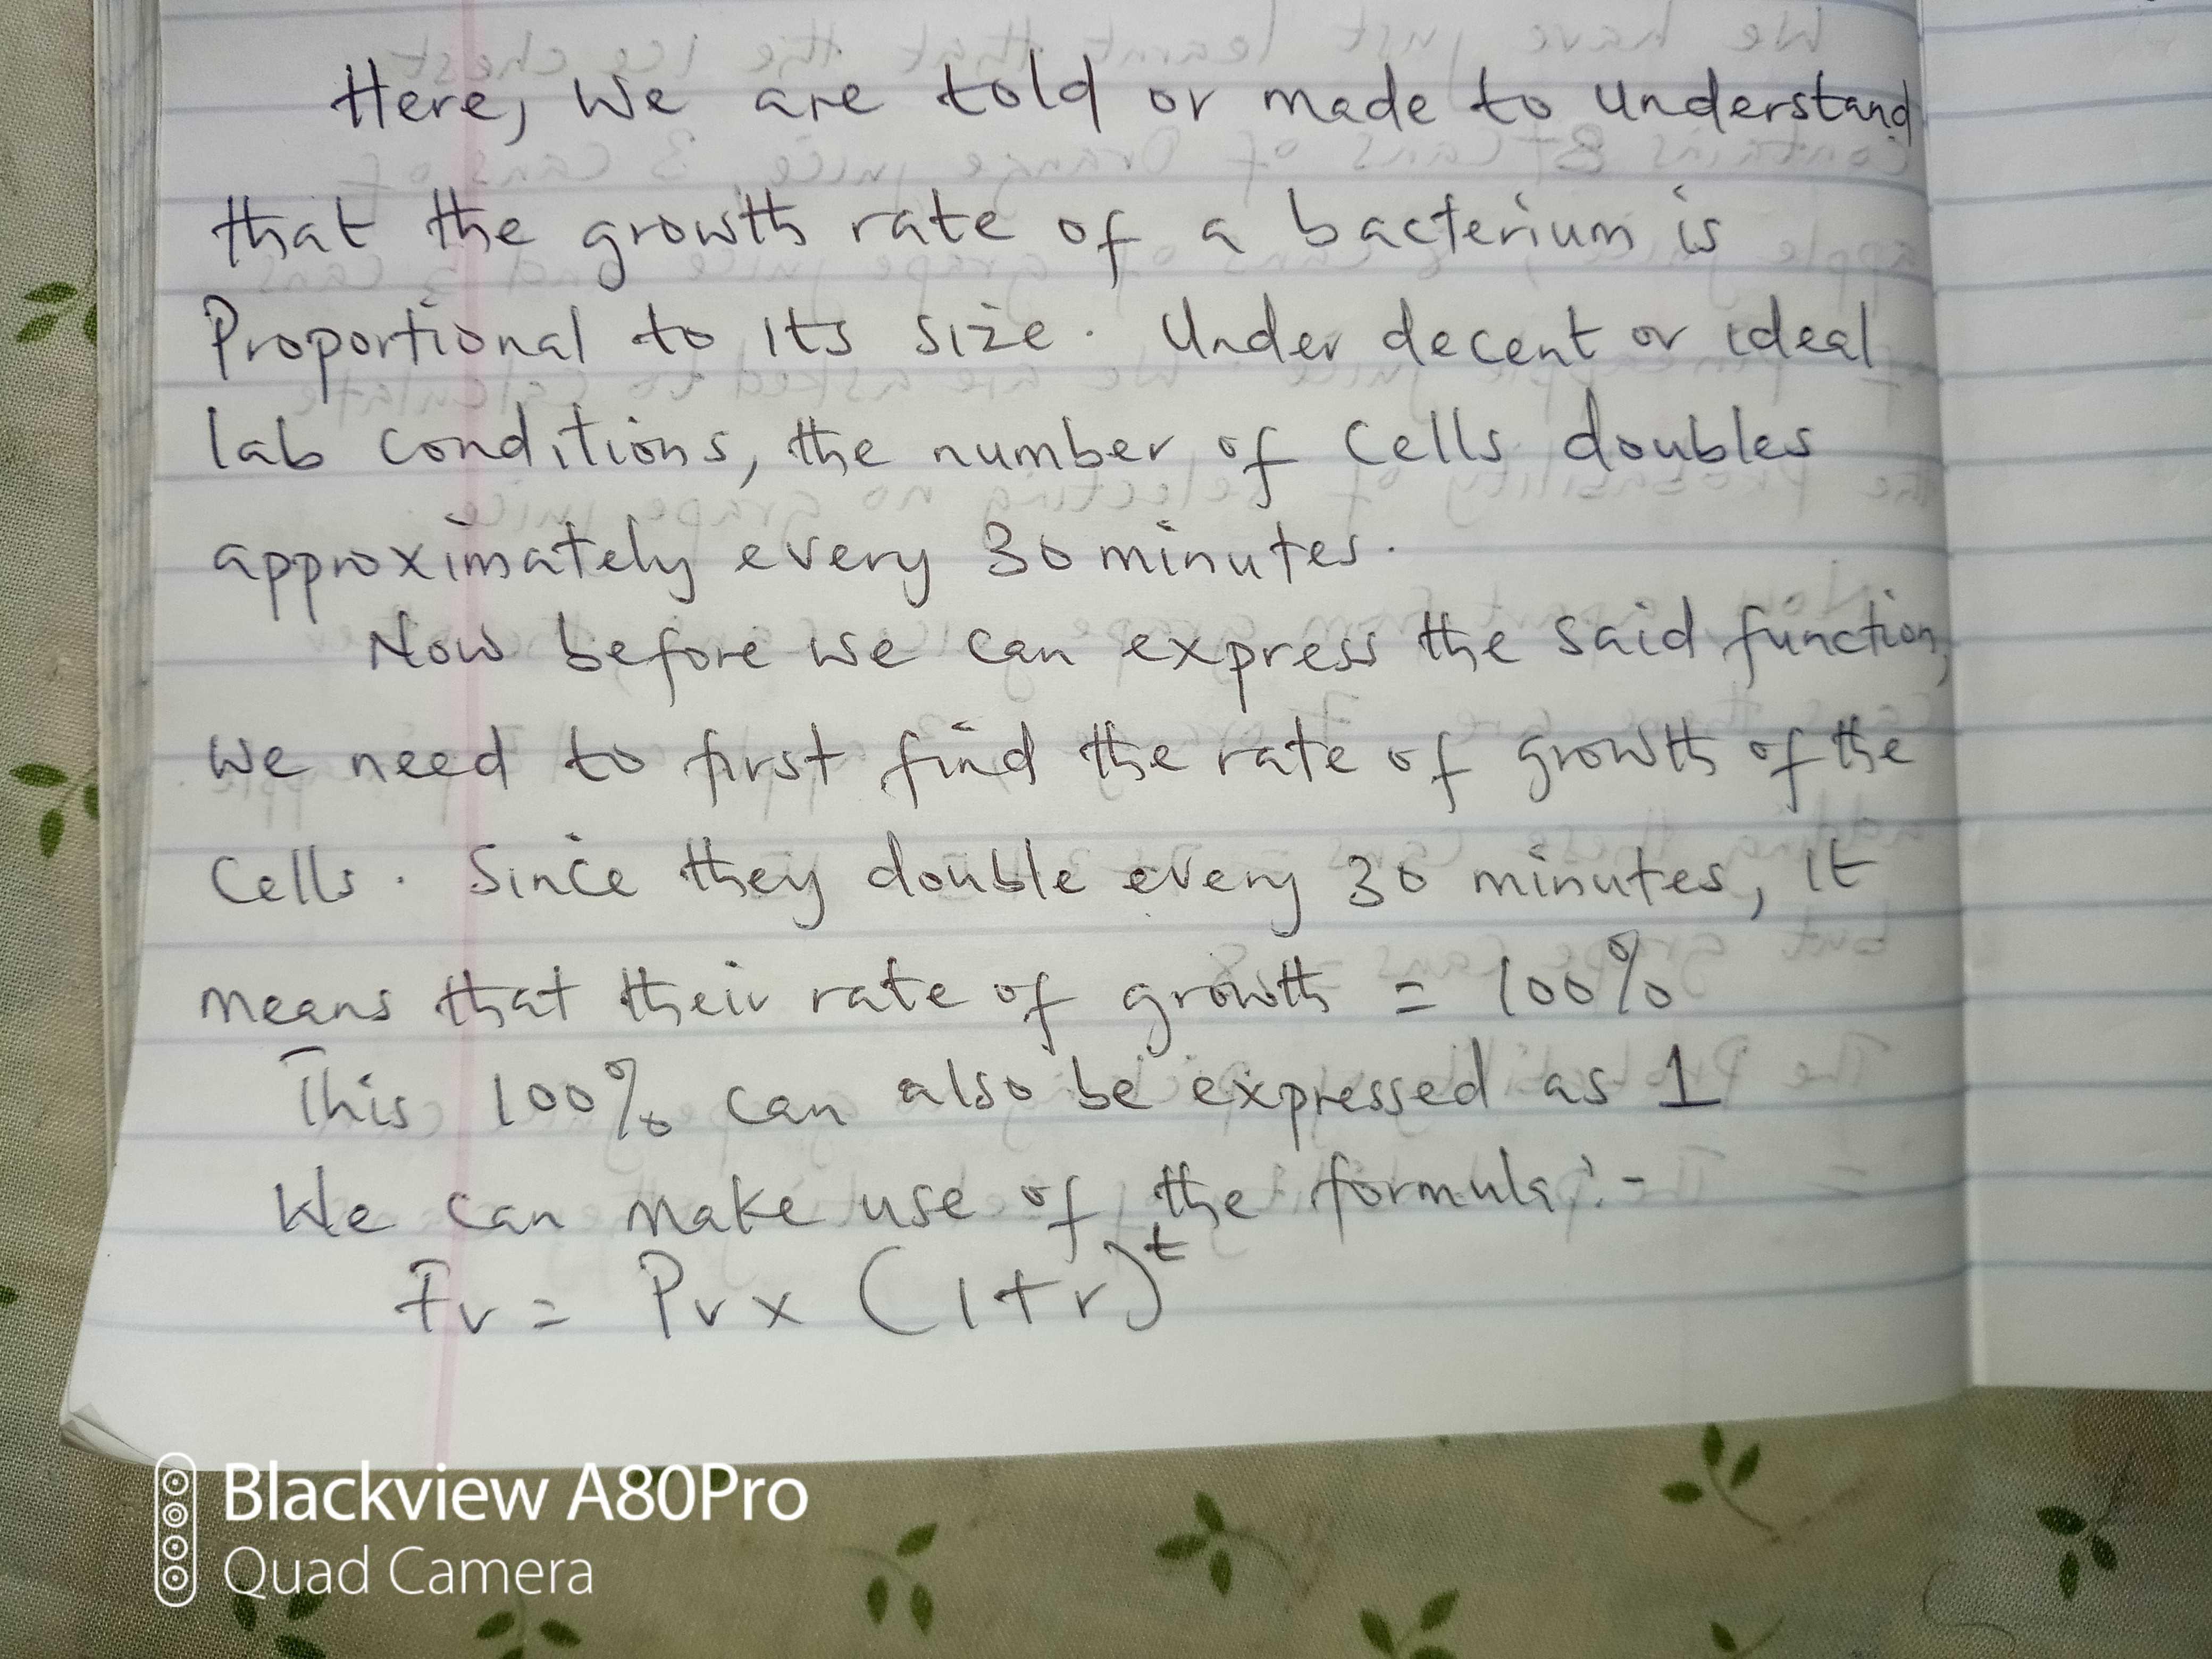 Here, We are told or made to understand
that the growth rate of a bacterium is
Proportional to its size. Under decent or ideal
lab conditions, the number of Cells doubles
approximately every 30 minutes.
Now before we can express the said function,
we need to first find the rate of growth of the
Cells. Since they double every 30 minutes, it
means that their rate of growth = 100%
This 100% can also be expressed as 1
We can make use of the formula:-
Fv = Pv x (1+r)^t
Blackview A80Pro
Quad Camera